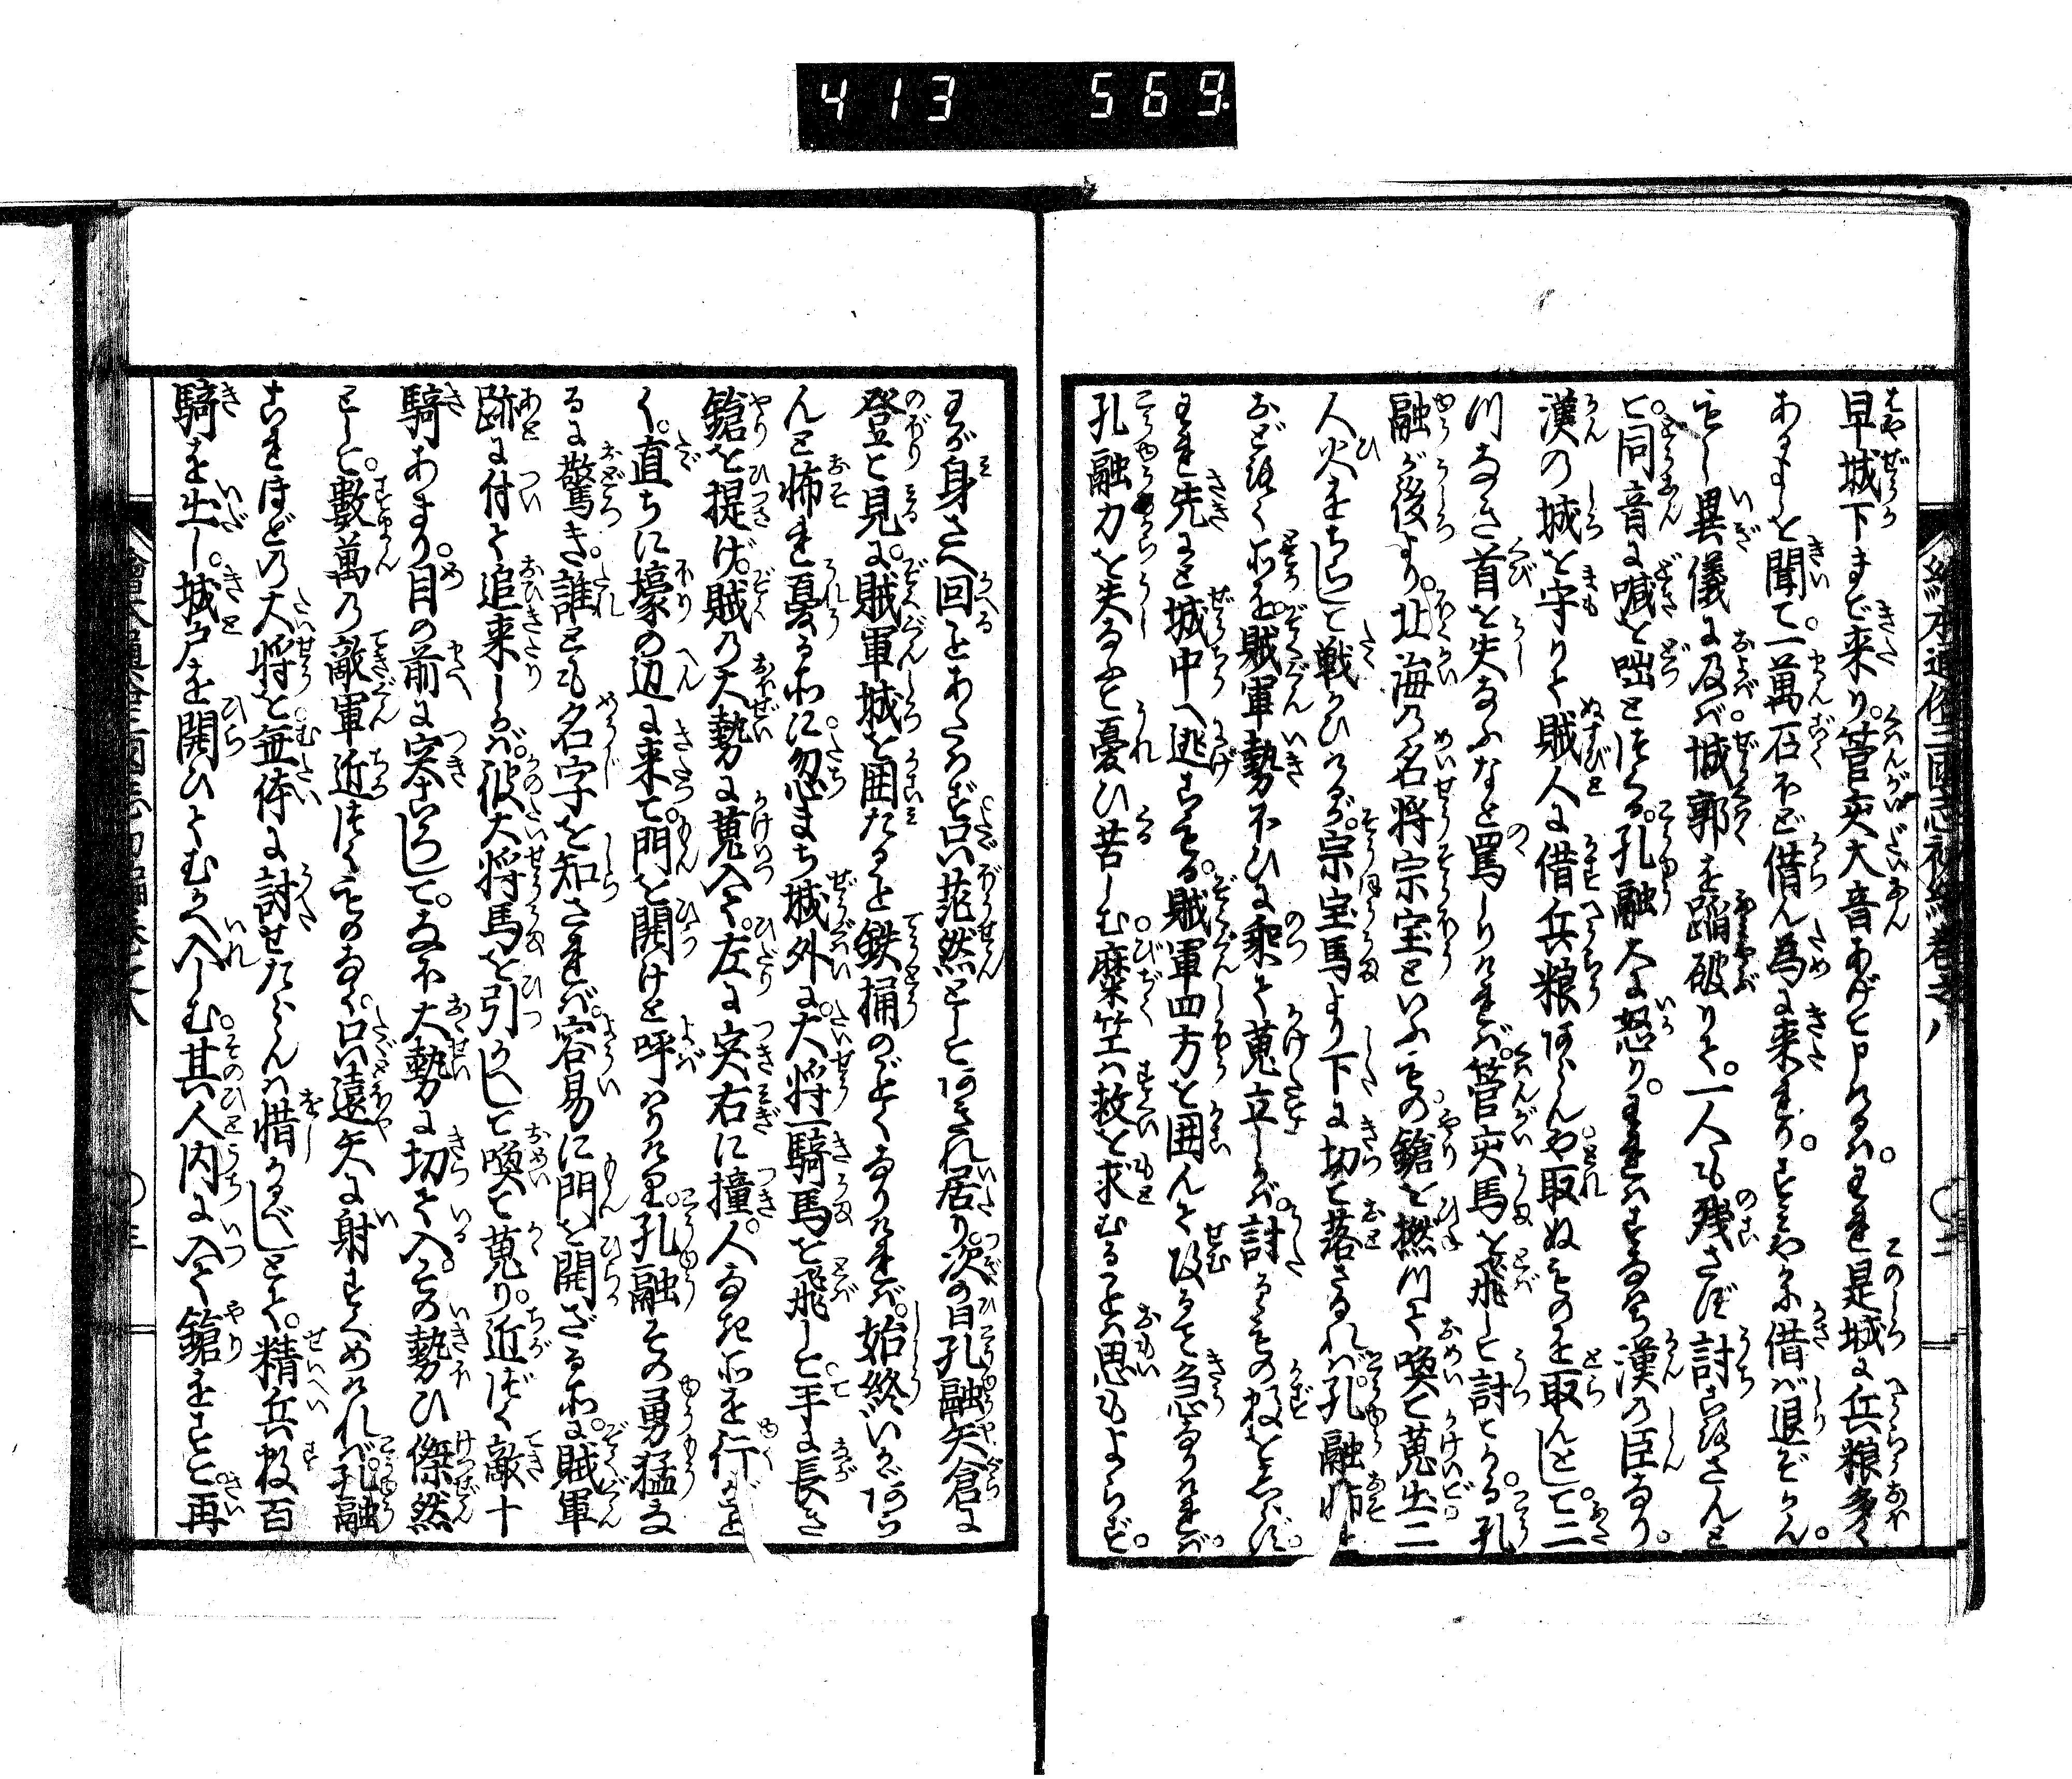 413 569
繪本通俗三國志初編巻之八
早城下まで来り。管亥大音あげて申けるハ。われ是城に兵粮多く
ありと聞て。一萬石ほど借ん為に来れり。すミやかに借バ退ぞかん。
もし異儀に及バ。城郭を蹈破りて。一人も残さず討ころさんと
と。同音に喊と咄とつくる。孔融大に怒り。われハすなハち漢の臣なり。
漢の城を守りて賊人に借兵粮あらんや取ぬものを取んとして。二
つなき首を失なふなと罵しりけれバ。管亥馬を飛して討てかゝる。孔
融が後より。北海の名将宗宝といふもの鎗を撚つて喚て蒐出二
人火をちらして戦かひけるが。宗宝馬より下に切て落さるれバ。孔融怖
おどろく所を。賊軍勢ひに乗て蒐立しかバ。討るゝもの数をしらず。
われ先にと城中へ逃こもる。賊軍四方を囲んで攻ること急なりけれバ。
孔融力を失なひて憂ひ苦しむ。麋竺ハ救を求むることハ思ひもよらず。
わが身さへ回ことあたハず只茫然としてあきれ居り。次の日孔融矢倉に
登て見に。賊軍城を囲たること鉄桶のごとくなりけれバ。始終いかゞあら
んと怖れ憂る所に。忽まち城外に。大将一騎馬を飛して。手に長き
鎗を提げ。賊の大勢に蒐入て。左に突右に撞。人なき所を行ごと
く。直ちに壕の辺に来て。門を開けと呼ハりけり。孔融その勇猛な
るに驚き。誰とも名字を知されバ。容易に門を開ざる所に。賊軍
跡に付て追来しかバ。彼大将馬を引かへして喚て蒐り。近づく敵十
騎あまり。目の前に突ころして。なほ大勢に切て入。その勢ひ傑然
として。數萬の敵軍近づくものなし。只遠矢に射すくめけれバ。孔融
これほどの大将を無体に討せたらんハ惜かるべしとて。精兵数百
騎を出し。城戸を開ひてむかへ入しむ。其人内に入て鎗をすて。再